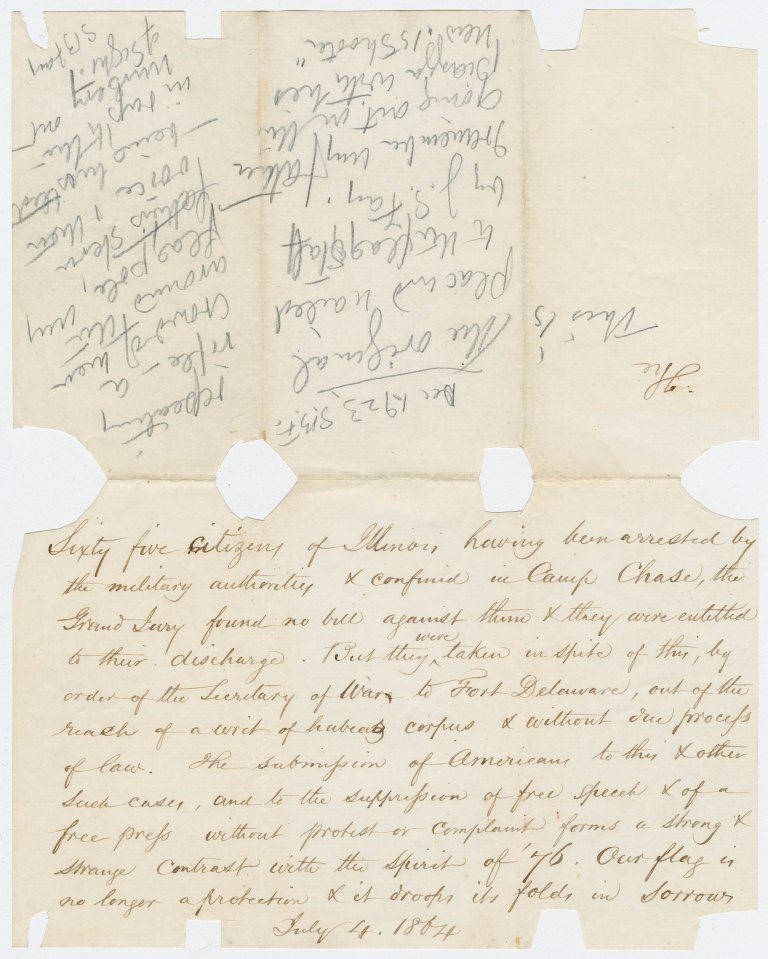 The
This is
Dec. 1923. S.B.F.
the original
placard nailed
to the flag staff
by J. S. Fay.
I remember my father
going out on the
piazza with his
new "15 Shooter"
repeating
rifle - a
crowd of men
around
flag pole,
father's stern
voice & then
being hustled
out
of sight.
S B Fay
Sixty five citizens of Illinois having been arrested by
the military authorities & confined in Camp Chase, the
Grand Jury found no bill against them & they were entitled
to their discharge. But they were taken in spite of this, by
order of the Secretary of War to Fort Delaware, out of the
reach of a writ of habeas corpus & without due process
of law. The submission of Americans to this & other
such cases, and to the suppression of free speech & of a
free press without protest or complaint forms a strong &
strange contrast with the spirit of '76. Our flag is
no longer a protection & it droops its folds in sorrow
July 4. 1864